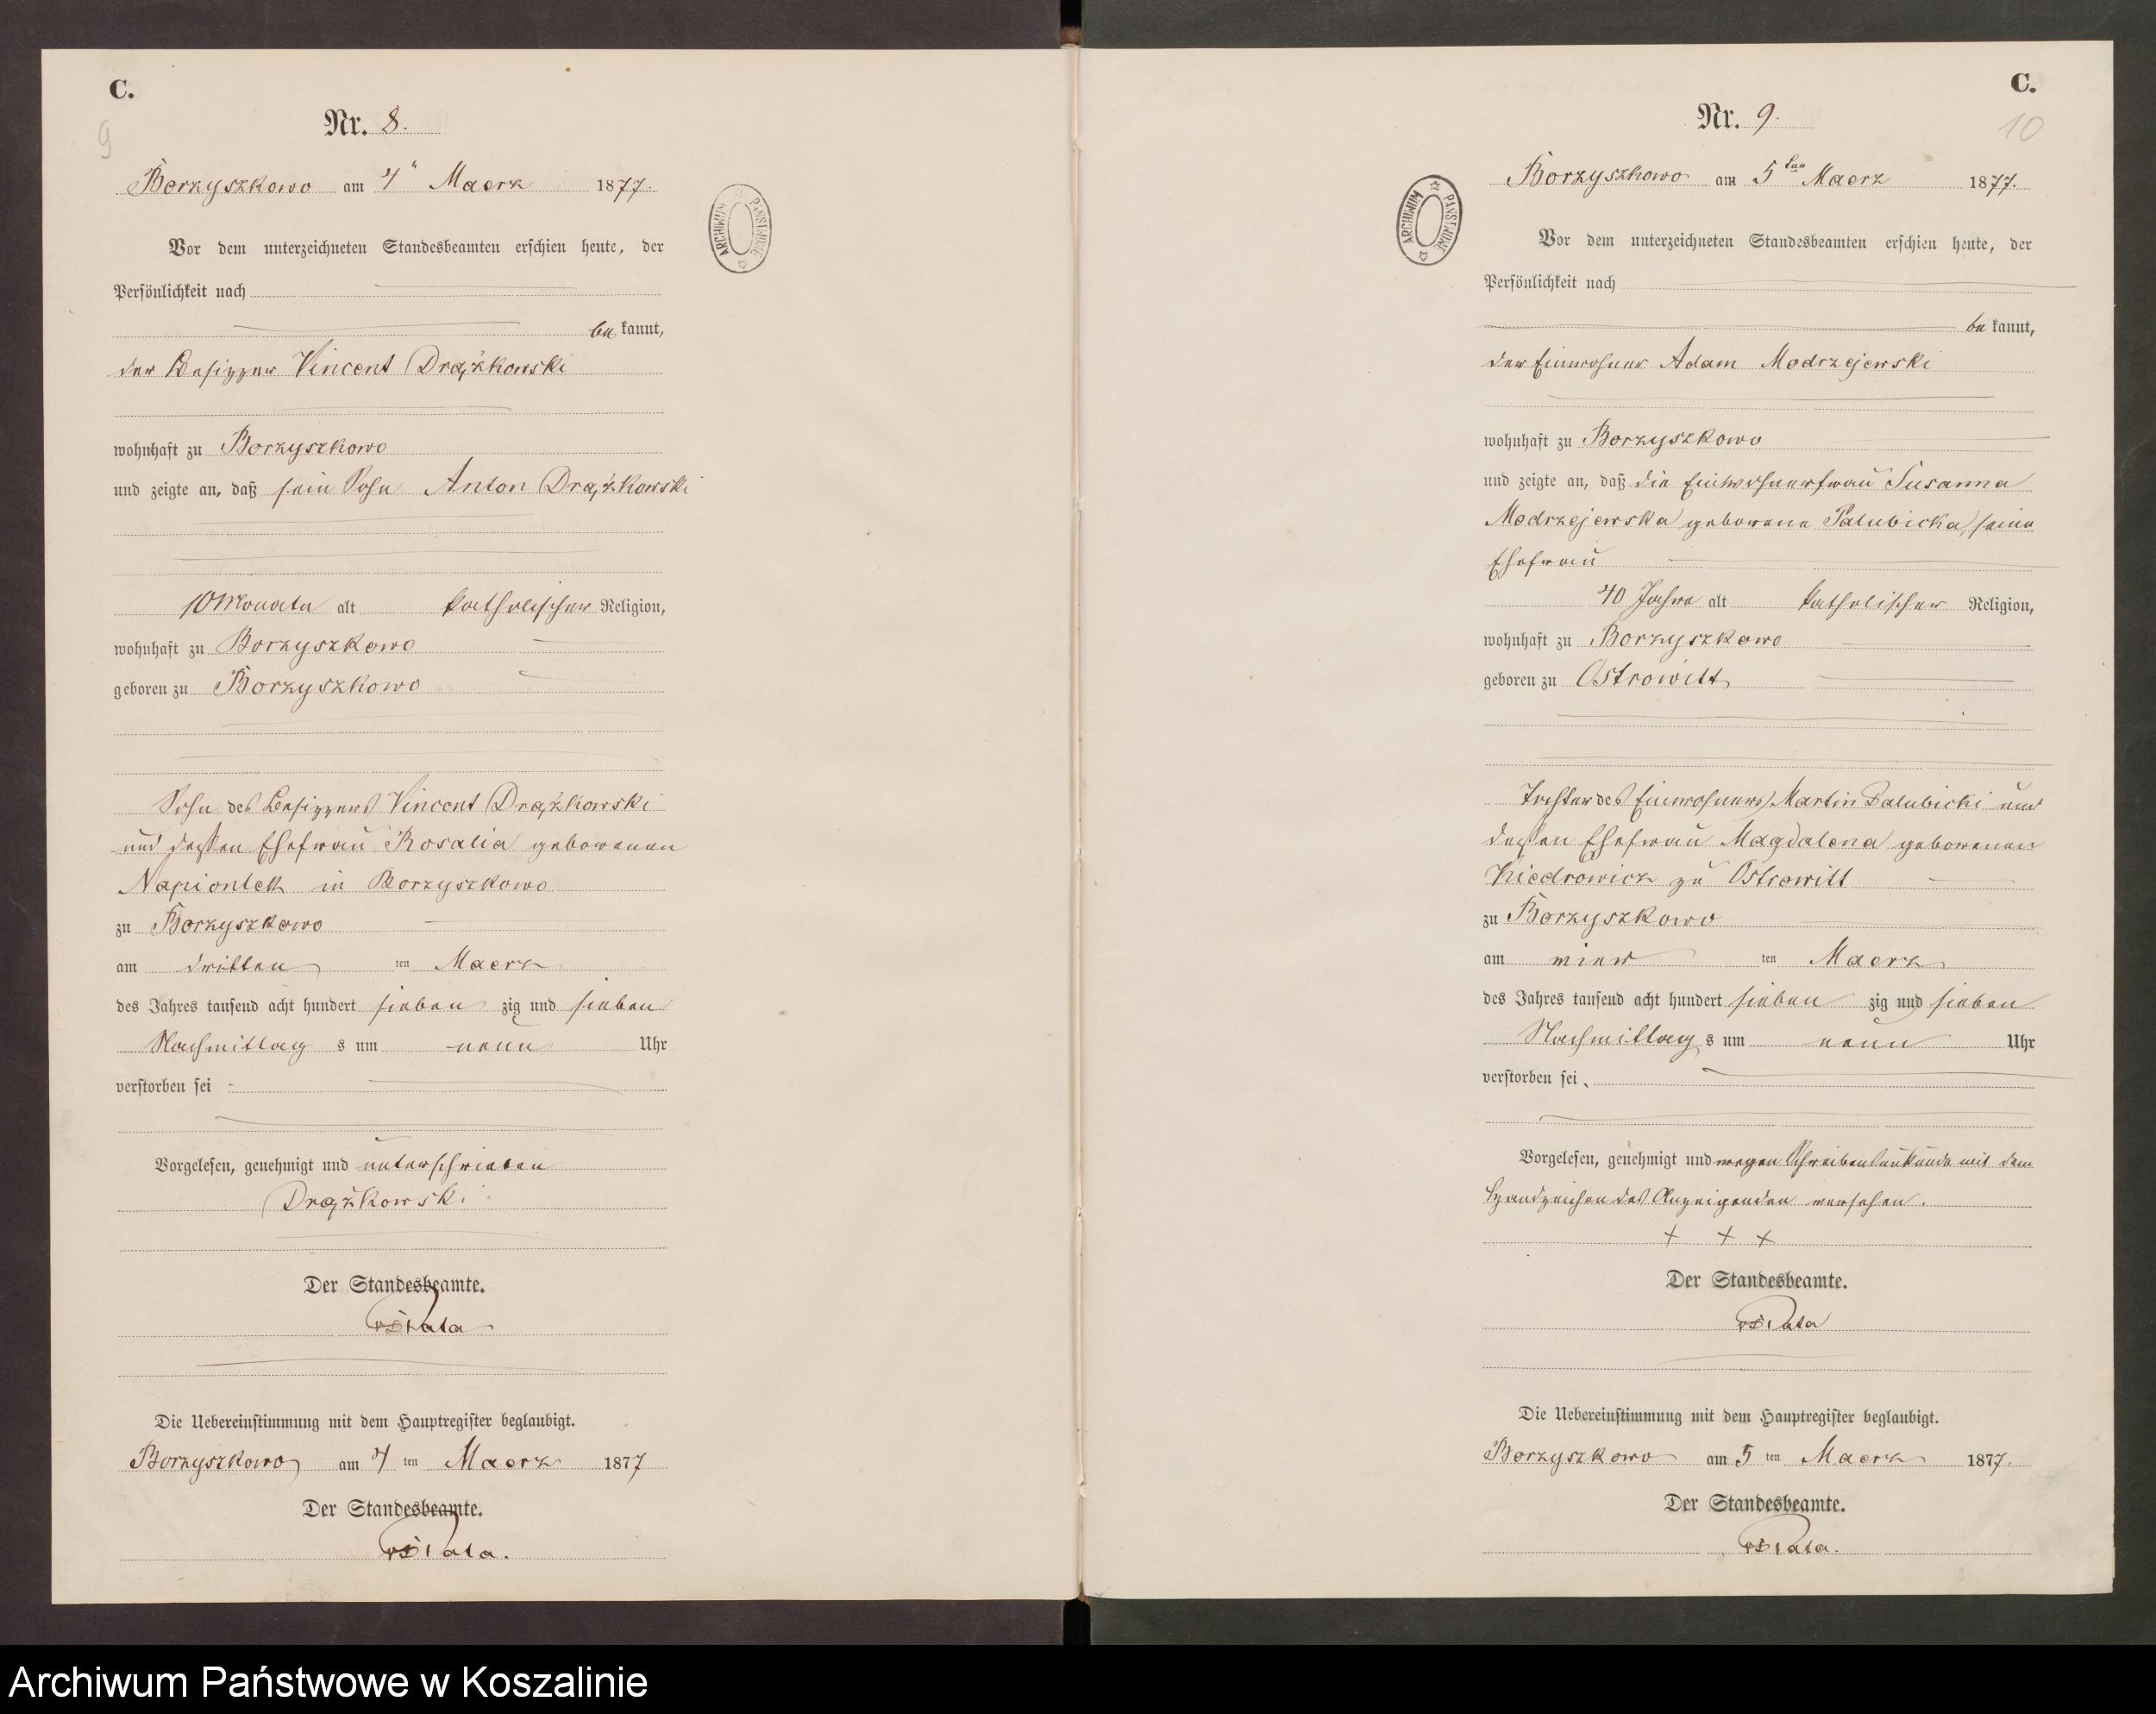 C.
9
Nr. 8.
Borzyszkowo am 4" Maerz 1877.
ARCHIWUM PAŃSTWOWE
Vor dem unterzeichneten Standesbeamten erschien heute, der
Persönlichkeit nach
be kannt,
der Besizzer Vincent Drążkowski
wohnhaft zu Borzyszkowo
und zeigte an, daß sein Sohn Anton Drążkowski
10 Monate alt katholischer Religion,
wohnhaft zu Borzyszkowo
geboren zu Borzyszkowo
Sohn des Besizzers Vincent Drążkowski
und dessen Ehefrau Rosalia geborenen
Napiontek in Borzyszkowo
zu Borzyszkowo
am dritten ten Maerz
des Jahres tausend acht hundert sieben zig und sieben
Nachmittag s um neun Uhr
verstorben sei
Vorgelesen, genehmigt und unterschrieben
Drążkowski
Der Standesbeamte.
Die Uebereinstimmung mit dem Hauptregister beglaubigt.
Borzyszkowo am 4 ten Maerz 1877
Der Standesbeamte.
C.
10
Nr. 9.
Borzyszkowo am 5ten Maerz 1877.
ARCHIWUM PAŃSTWOWE
Vor dem unterzeichneten Standesbeamten erschien heute, der
Persönlichkeit nach
be kannt,
der Einwohner Adam Modrzejewski
wohnhaft zu Borzyszkowo
und zeigte an, daß die Einwohnerfrau Susanna
Modrzejewska geborene Palubicka, seine
Ehefrau
40 Jahre alt katholischer Religion,
wohnhaft zu Borzyszkowo
geboren zu Ostrowitt
Tochter des Einwohners Martin Palubicki und
dessen Ehefrau Magdalena geborenen
Kiedrowicz zu Ostrowitt
zu Borzyszkowo
am vier ten Maerz
des Jahres tausend acht hundert sieben zig und sieben
Nachmittag s um neun Uhr
verstorben sei.
Vorgelesen, genehmigt und wegen Schreibensunkunde mit dem
Handzeichen des Anzeigenden versehen.
+ + +
Der Standesbeamte.
Die Uebereinstimmung mit dem Hauptregister beglaubigt.
Borzyszkowo am 5 ten Maerz 1877.
Der Standesbeamte.
Archiwum Państwowe w Koszalinie